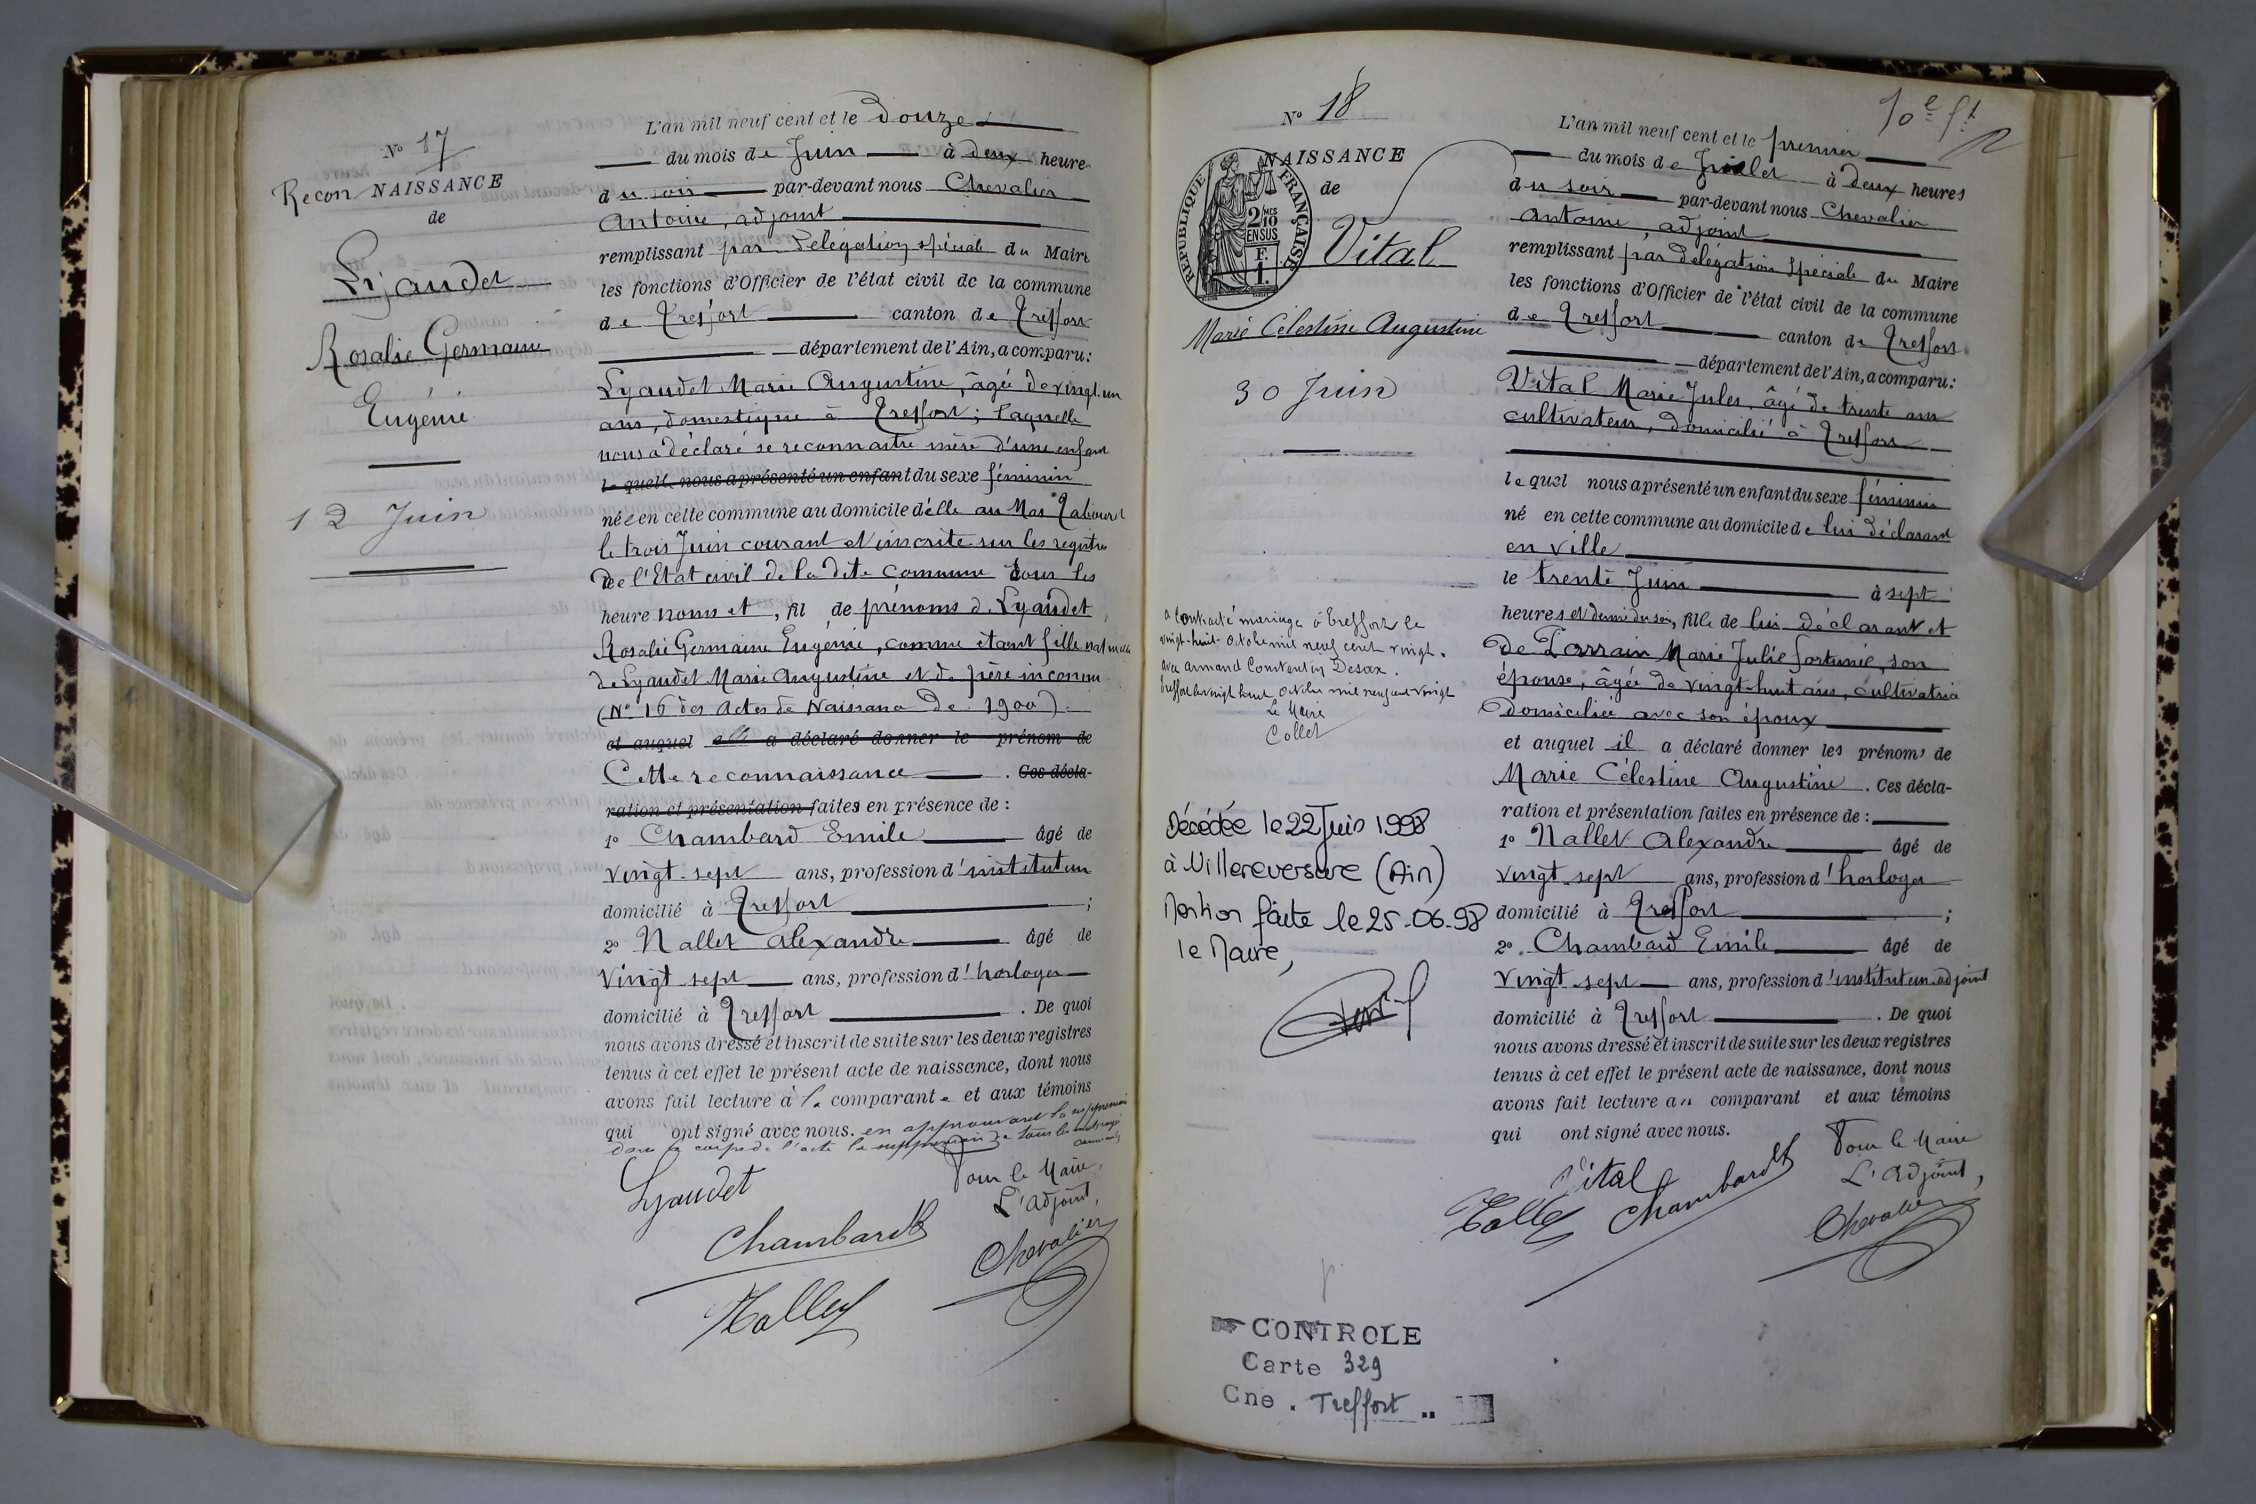 Nº 17
Recon NAISSANCE
de
Lyaudet
Rosalie Germaine
Eugénie
12 Juin
L'an mil neuf cent et le Douze
du mois de Juin à deux heure
du soir par-devant nous Chevalier
Antoine, adjoint
remplissant par Délégation spéciale du Maire
les fonctions d'Officier de l'état civil de la commune
de Treffort canton de Treffort
département de l'Ain, a comparu:
Lyaudet Marie Augustine, âgée de vingt un
ans, domestique à Treffort; laquelle
nous a déclaré se reconnaitre mère d'une enfant
le quel nous a présenté un enfant du sexe féminin
née en cette commune au domicile d'elle au Mas
le trois Juin courant et inscrite sur les registres
de l'Etat civil de la dite commune sous les
heure noms et , fil de prénoms de Lyaudet
Rosalie Germaine Eugénie, comme étant fille naturelle
de Lyaudet Marie Augustine et de père inconnu
(Nº 16 des Actes de Naissance de 1900).
et auquel elle a déclaré donner le prénom de
Cette reconnaissance . Ces décla-
ration et présentation faites en présence de :
1º Chambard Emile âgé de
vingt-sept ans, profession d'instituteur
domicilié à Treffort ;
2º Nallet Alexandre âgé de
vingt sept ans, profession d'horloger
domicilié à Treffort . De quoi
nous avons dressé et inscrit de suite sur les deux registres
tenus à cet effet le présent acte de naissance, dont nous
avons fait lecture à la comparante et aux témoins
qui ont signé avec nous. en approuvant la suppression
dans le corps de l'acte
Lyaudet
Pour le Maire,
L'adjoint,
Chambard
Chevalier
Nallet
Nº 18
NAISSANCE
de
RÉPUBLIQUE FRANÇAISE
2 MCS
10
EN SUS
F.
1.
Vital
Marie Célestine Augustine
30 Juin
a contracté mariage à Treffort le
vingt-huit octobre mil neuf cent vingt.
avec Armand Constantin Desax.
Treffort le vingt huit octobre mil neuf cent vingt
Le Maire
Collet
Décédée le 22 Juin 1998
à Villereversure (Ain)
Mention faite le 25-06-98
le Maire,
CONTROLE
Carte 329
Cne . Treffort
10e
L'an mil neuf cent et le premier
du mois de Juillet à deux heures
du soir par-devant nous Chevalier
Antoine, adjoint
remplissant par délégation spéciale du Maire
les fonctions d'Officier de l'état civil de la commune
de Treffort canton de Treffort
département de l'Ain, a comparu:
Vital Marie Jules, âgé de trente ans
cultivateur, domicilié à Treffort
le quel nous a présenté un enfant du sexe féminin
né en cette commune au domicile de lui déclarant
en ville
le trente Juin à sept
heures et demie du soir, fille de lui déclarant et
de Parrain Marie Julie fortunée, son
épouse, âgée de vingt-huit ans, cultivatrice
domiciliée avec son époux
et auquel il a déclaré donner les prénoms de
Marie Célestine Augustine . Ces décla-
ration et présentation faites en présence de :
1º Nallet Alexandre âgé de
vingt sept ans, profession d'horloger
domicilié à Treffort ;
2º Chambard Emile âgé de
vingt sept ans, profession d'instituteur adjoint
domicilié à Treffort . De quoi
nous avons dressé et inscrit de suite sur les deux registres
tenus à cet effet le présent acte de naissance, dont nous
avons fait lecture au comparant et aux témoins
qui ont signé avec nous.
Vital
Pour le Maire
L'adjoint,
Nallet Chambard
Chevalier